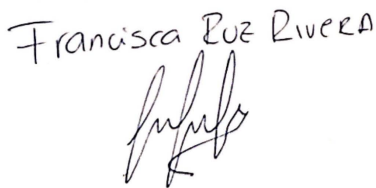 Francisca RUZ RIVERA